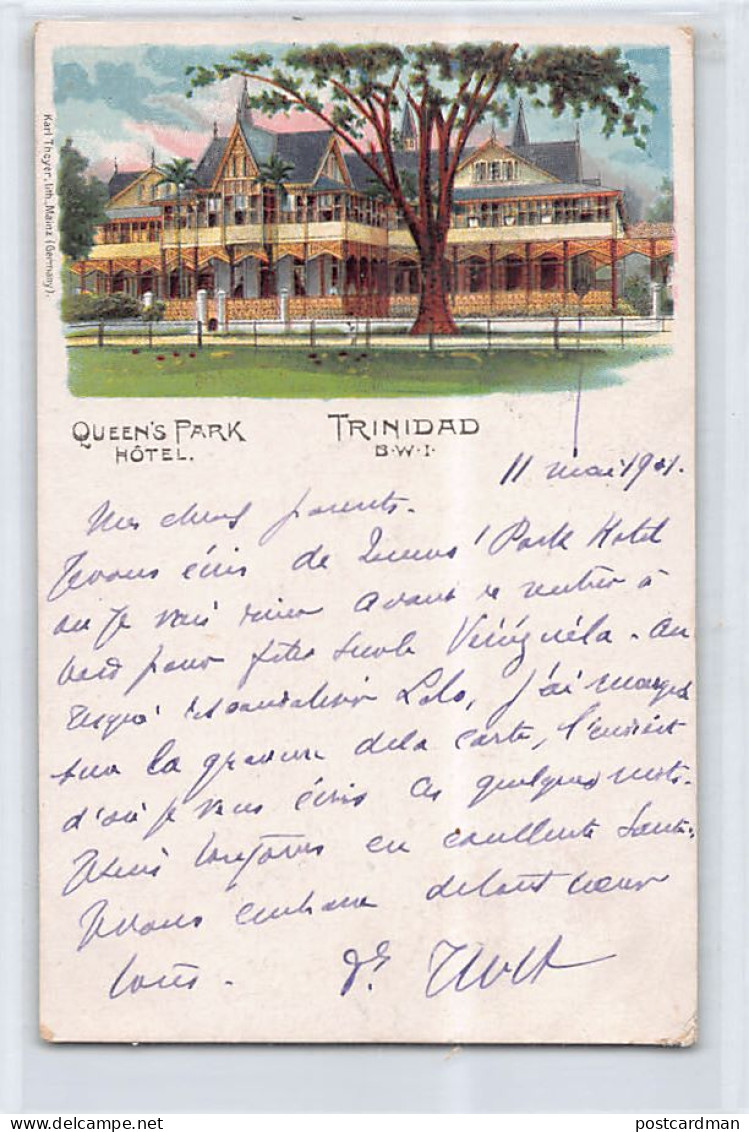 Karl Theyer, lith., Mainz (Germany).
QUEEN'S PARK
HÔTEL.
TRINIDAD
B.W.I.
11 mai 1901.
Mes chers parents.
Je vous écris de Queens' Park Hotel
ou je vais diner avant de rentrer à
bord pour filer sur le Vénézuéla. Au
Lolo, j'ai marqué
sur la gravure de la carte, l'endroit
d'où je vous écris ces quelques mots.
Suis toujours en excellente santé.
Je vous embrasse de tout cœur
tous.
postcardman